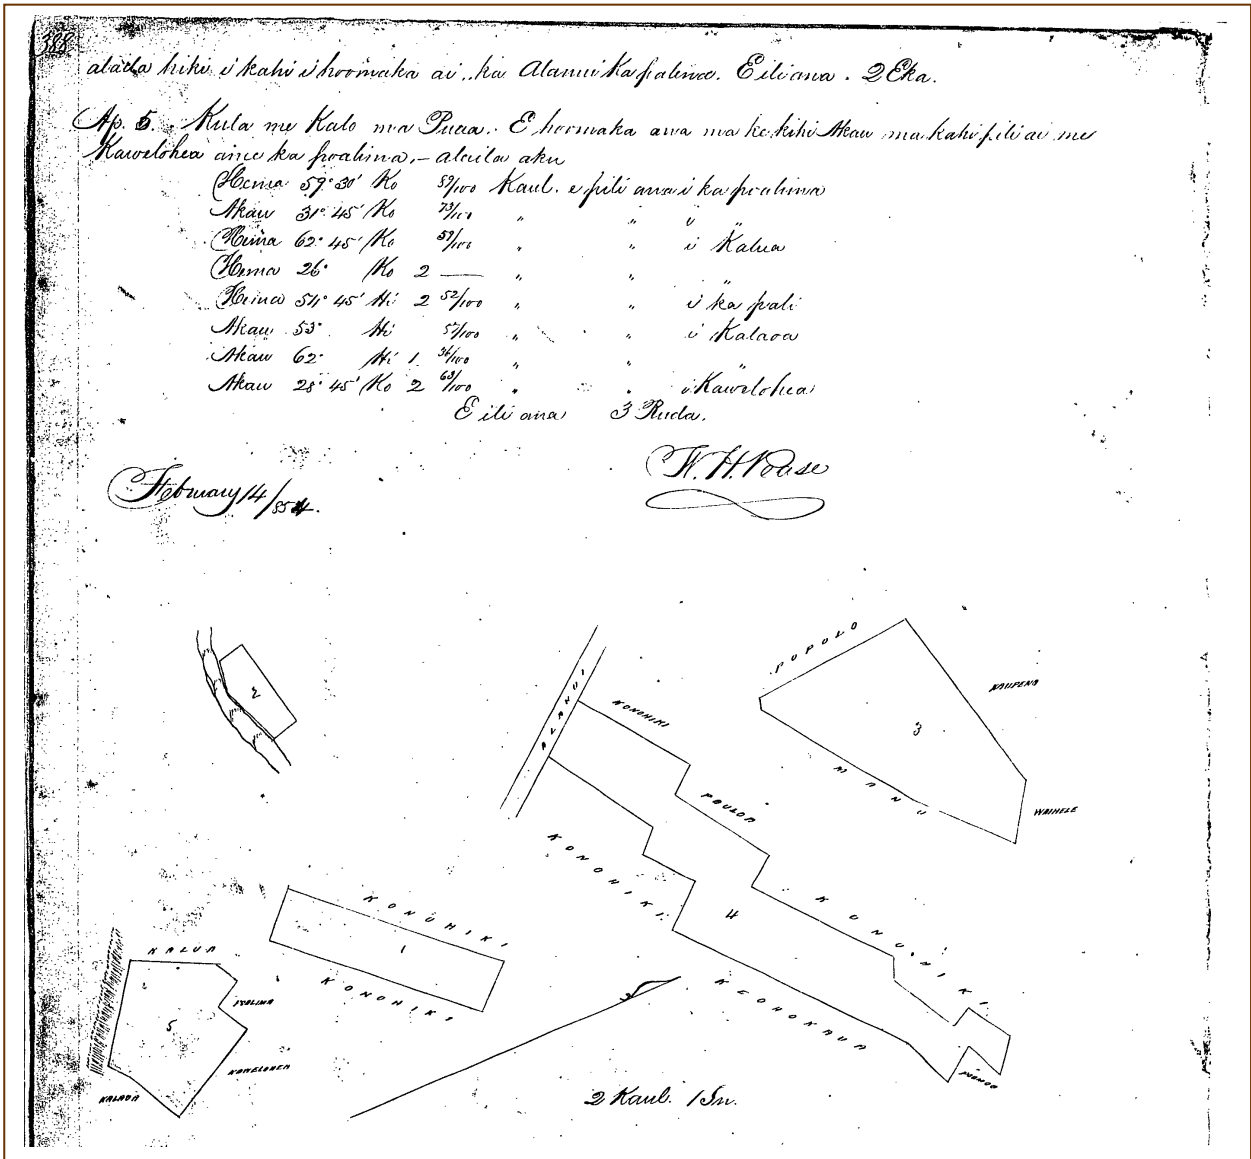 388
alaila hiki i kahi i hoomaka ai, ka Alanui Ka poalima. E ili ana. 2 Eka.
Ap. 5. Kula me Kalo ma Puaa. E hoomaka ana ma ke kihi Akau ma kahi pili ai me
Kawelohea a me ka poalima,- alaila aku
Hema 59° 30' Ko 59/100 Kaul. e pili ana i ka poalima
Akau 31° 45' Ko 73/100 " " " "
Hema 62° 45' Ko 59/100 " " i Kalua
Hema 26° Ko 2 — " " "
Hema 54° 45' Hi 2 52/100 " " i ka pali
Akau 53° Hi 57/100 " " i Kalaoa
Akau 62° Hi 1 36/100 " " "
Akau 28° 45' Ko 2 63/100 " " i Kawelohea
E ili ana 3 Ruda.
W. H. Pease
February 14/854.
2
ALANUI
KONOHIKI
POULOA
KONOHIKI
4
KONOHIKI
KEOHOKAUA
POPOLO
KAUPENA
3
MANU
WAIHELE
KONOHIKI
1
KONOHIKI
KALUA
POALIMA
5
KAWELOHEA
KALAOA
2 Kaul. 1 In.